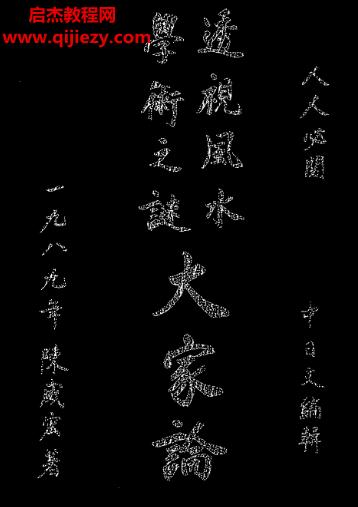 启杰教程网
www.qijiezy.com
人人必閱
中日文編輯
透視風水
學術之謎
大家論
一九八九年陳威宏著